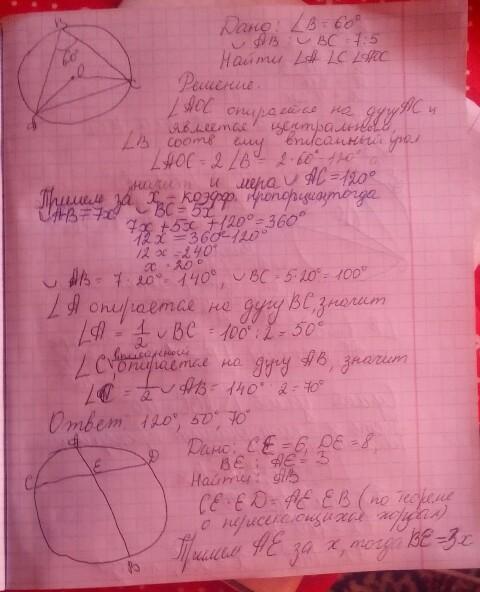 Дано: ∠B = 60°
◡AB : ◡BC = 7:5
Найти ∠A ∠C ∠AOC
B
60°
O
C
A
Решение.
∠AOC опирается на дугу AC и
является центральным,
∠B соотв ему вписанный угол
∠AOC = 2∠B = 2·60°=120°
значит и мера ◡AC = 120°
Примем за x - коэфф. пропорции, тогда
◡AB = 7x ◡BC = 5x
7x + 5x + 120° = 360°
12x = 360°-120°
12x = 240°
x = 20°
◡AB = 7·20° = 140°, ◡BC = 5·20° = 100°
∠A опирается на дугу BC, значит
∠A = 1/2 ◡BC = 100° : 2 = 50°
∠C вписанный опирается на дугу AB, значит
∠C = 1/2 ◡AB = 140° : 2 = 70°
Ответ 120°, 50°, 70°
A
C
E
D
B
Дано: CE = 6, DE = 8,
BE : AE = 3
Найти: AB
CE·ED = AE·EB (по теореме
о пересекающихся хордах)
Примем AE за x, тогда BE = 3x